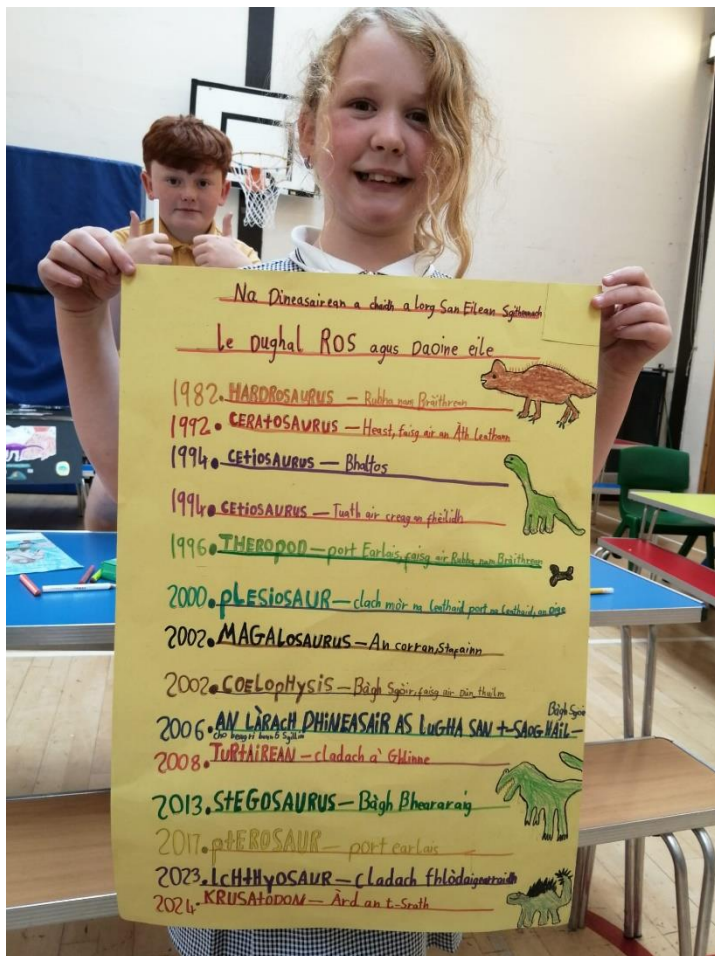 Na Dineasairean a chaidh a lorg San Eilean Sgitheanach
le Dughal ROS agus Daoine eile
1982. HARDROSAURUS – Rubha nam Bràithrean
1992. CERATOSAURUS – Heast, faisg air an Àth Leathann
1994. CETIOSAURUS – Bhaltos
1994. CETIOSAURUS – Tuath air creag an fhèilidh
1996. THEROPOD – port Earlais, faisg air Rubha nam Bràithrean
2000. PLESIOSAUR – clach mòr na leathaid, port na leathaid, an
2002. MAGALOSAURUS – An corran, Stafainn
2002. COELOPHYSIS – Bàgh Sgòir, faisg air Dùn thuilm
2006. AN LÀRACH DHINEASAIR AS LUGHA SAN t-SAOGHAIL – Bàgh Sgòir
cho beag ri bonn 5 sgillin
2008. TURTAIREAN – cladach a' Ghlinne
2013. STEGOSAURUS – Bàgh Bheararaig
2017. PTEROSAUR – port earlais
2023. IcHtHyOSAUR – cladach fhlòdaigearraidh
2024. KRUSATODON – Àrd an t-Srath